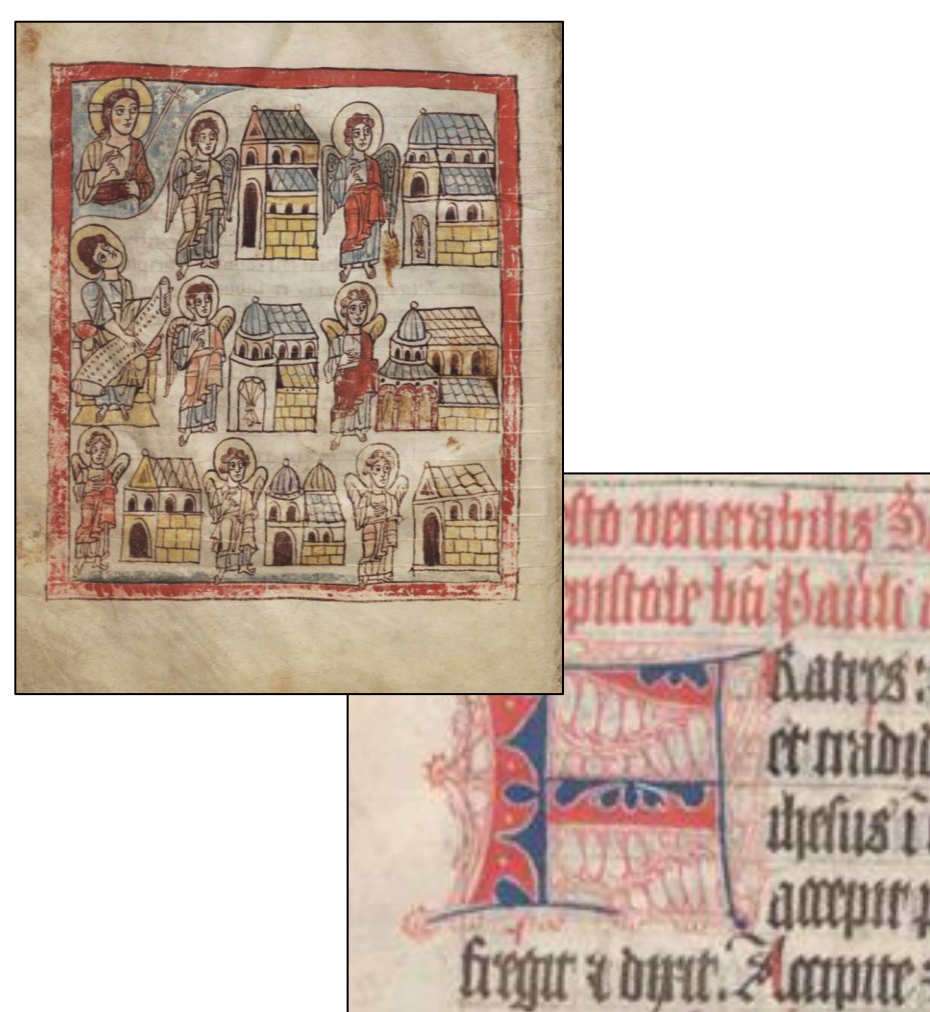 sto venerabilis S
pistole bti Pauli
FRatres :
et tradid
ihesus ī
accepit p
fregit ⁊ dixit. Accipite ⁊